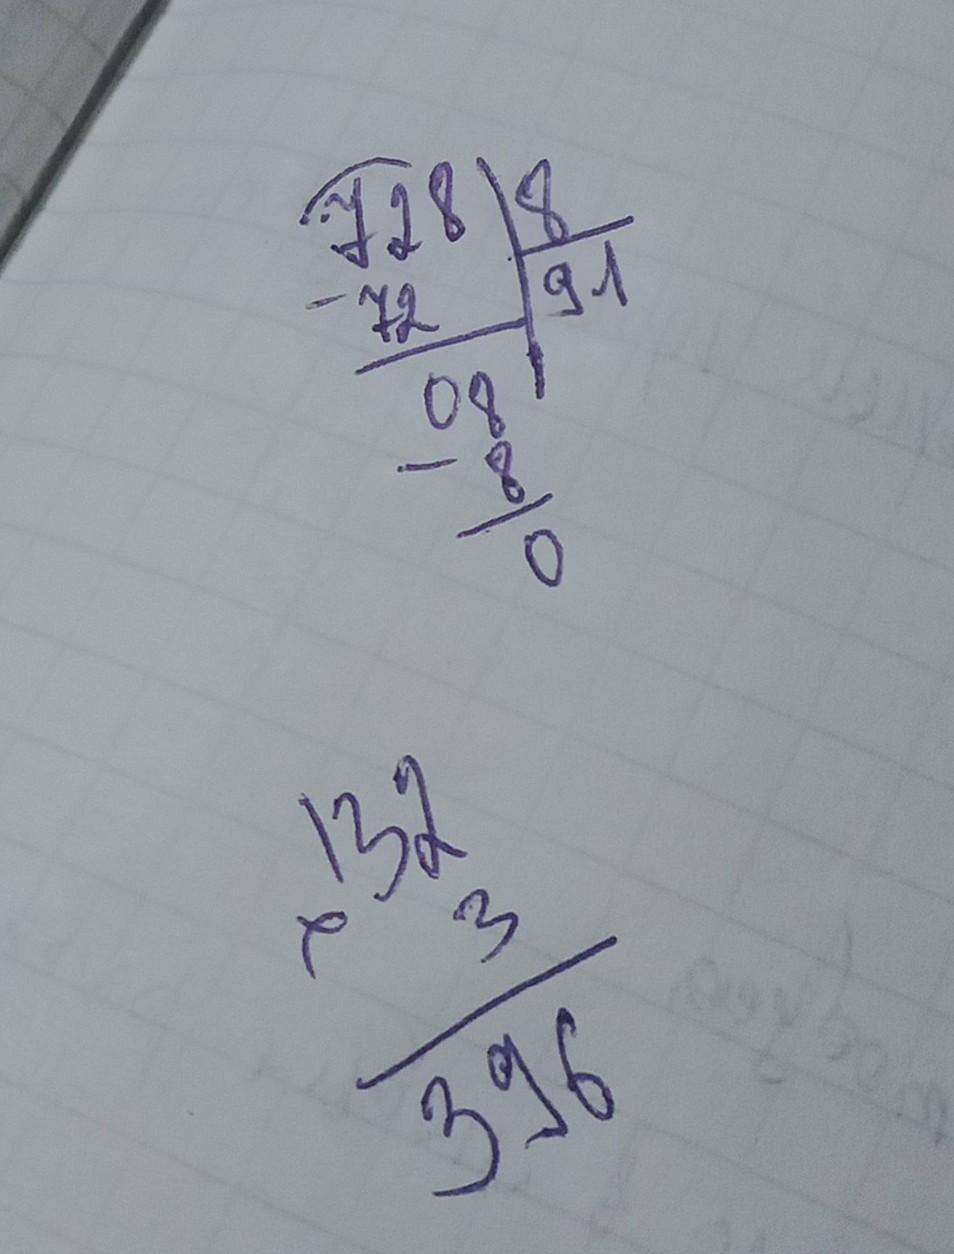 728 8
- 72 91
08
- 8
0
132
x 3
396